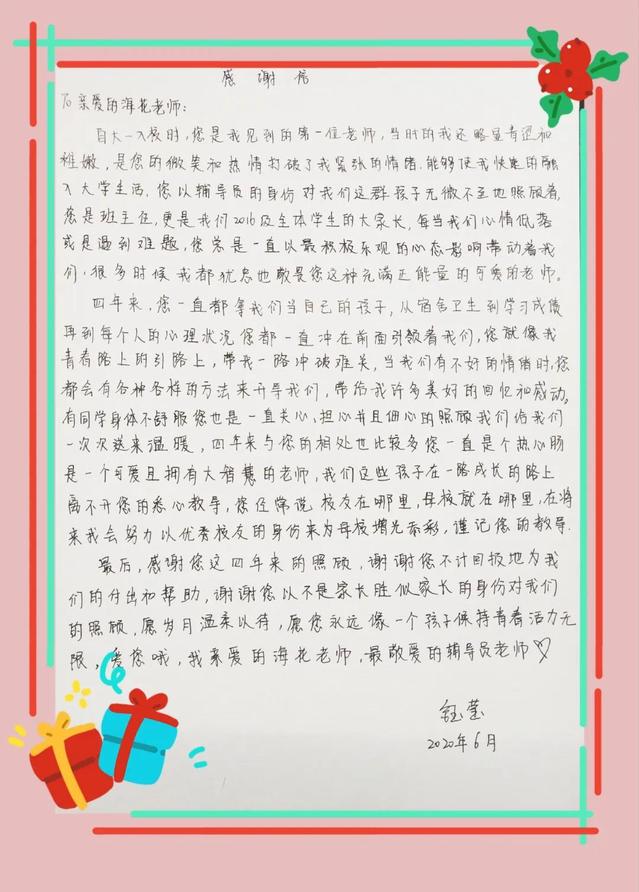 感谢信
亲爱的海花老师:
自大一入校时,您是我见到的第一位老师,当时的我还略显青涩和
稚嫩,是您的微笑和热情打破了我紧张的情绪.能够使我快速的融
入大学生活.您以辅导员的身份对我们这群孩子无微不至地照顾着,
您是班主任,更是我们2016及全体学生的大家长,每当我们心情低落
或是遇到难题,您总是一直以最积极乐观的心态影响带动着我
们,很多时候我都犹忽也敬是您这种充满正能量的可爱的老师。
四年来,您一直都拿我们当自己的孩子,从宿舍卫生到学习成绩
再到每个人的心理状况您都一直冲在前面引领着我们,您就像我
青春路上的引路上,带我一路冲破难关,当我们有不好的情绪时,您
都会有各种各样的方法来开导我们,带给我许多美好的回忆和感动。
有同学身体不舒服您也是一直关心、担心并且细心的照顾我们给我们
一次次送来温暖,四年来与您的相处也比较多您一直是个热心肠
是一个可爱且拥有大智慧的老师,我们这些孩子在一路成长的路上
离不开您的悉心教导,您经常说校友在哪里,母校就在哪里,在将
来我会努力以优秀校友的身份来为母校增光添彩,谨记您的教导.
最后,感谢您这四年来的照顾,谢谢您不计回报地为我
们的付出和帮助,谢谢您以不是家长胜似家长的身份对我们
的照顾,愿岁月温柔以待,愿您永远像一个孩子保持青春活力无
限,爱您哦,我亲爱的海花老师,最敬爱的辅导员老师♡
钰莹
2020年6月